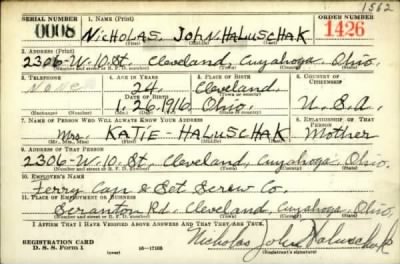 1562
SERIAL NUMBER 1. NAME (Print) ORDER NUMBER
0008 NICHOLAS JOHN HALUSCHAK 1426
2. ADDRESS (Print)
2306-W. 10. St. Cleveland, Cuyahoga Ohio.
3. TELEPHONE 4. AGE IN YEARS 5. PLACE OF BIRTH 6. COUNTRY OF CITIZENSHIP
None 24 Cleveland.
DATE OF BIRTH
1. 26. 1916. Ohio. U. S. A.
7. NAME OF PERSON WHO WILL ALWAYS KNOW YOUR ADDRESS 8. RELATIONSHIP OF THAT PERSON
Mrs. KATIE - HALUSCHAK Mother
(Mr., Mrs., Miss) (First) (Middle) (Last)
9. ADDRESS OF THAT PERSON
2306-W. 10. St. Cleveland, Cuyahoga, Ohio.
10. EMPLOYER'S NAME
Ferry Cap & Set Screw Co.
11. PLACE OF EMPLOYMENT OR BUSINESS
Scranton Rd. Cleveland, Cuyahoga, Ohio,
I AFFIRM THAT I HAVE VERIFIED ABOVE ANSWERS AND THAT THEY ARE TRUE.
REGISTRATION CARD
D. S. S. Form 1 (over) Nicholas John Haluschak
(Registrant's signature)